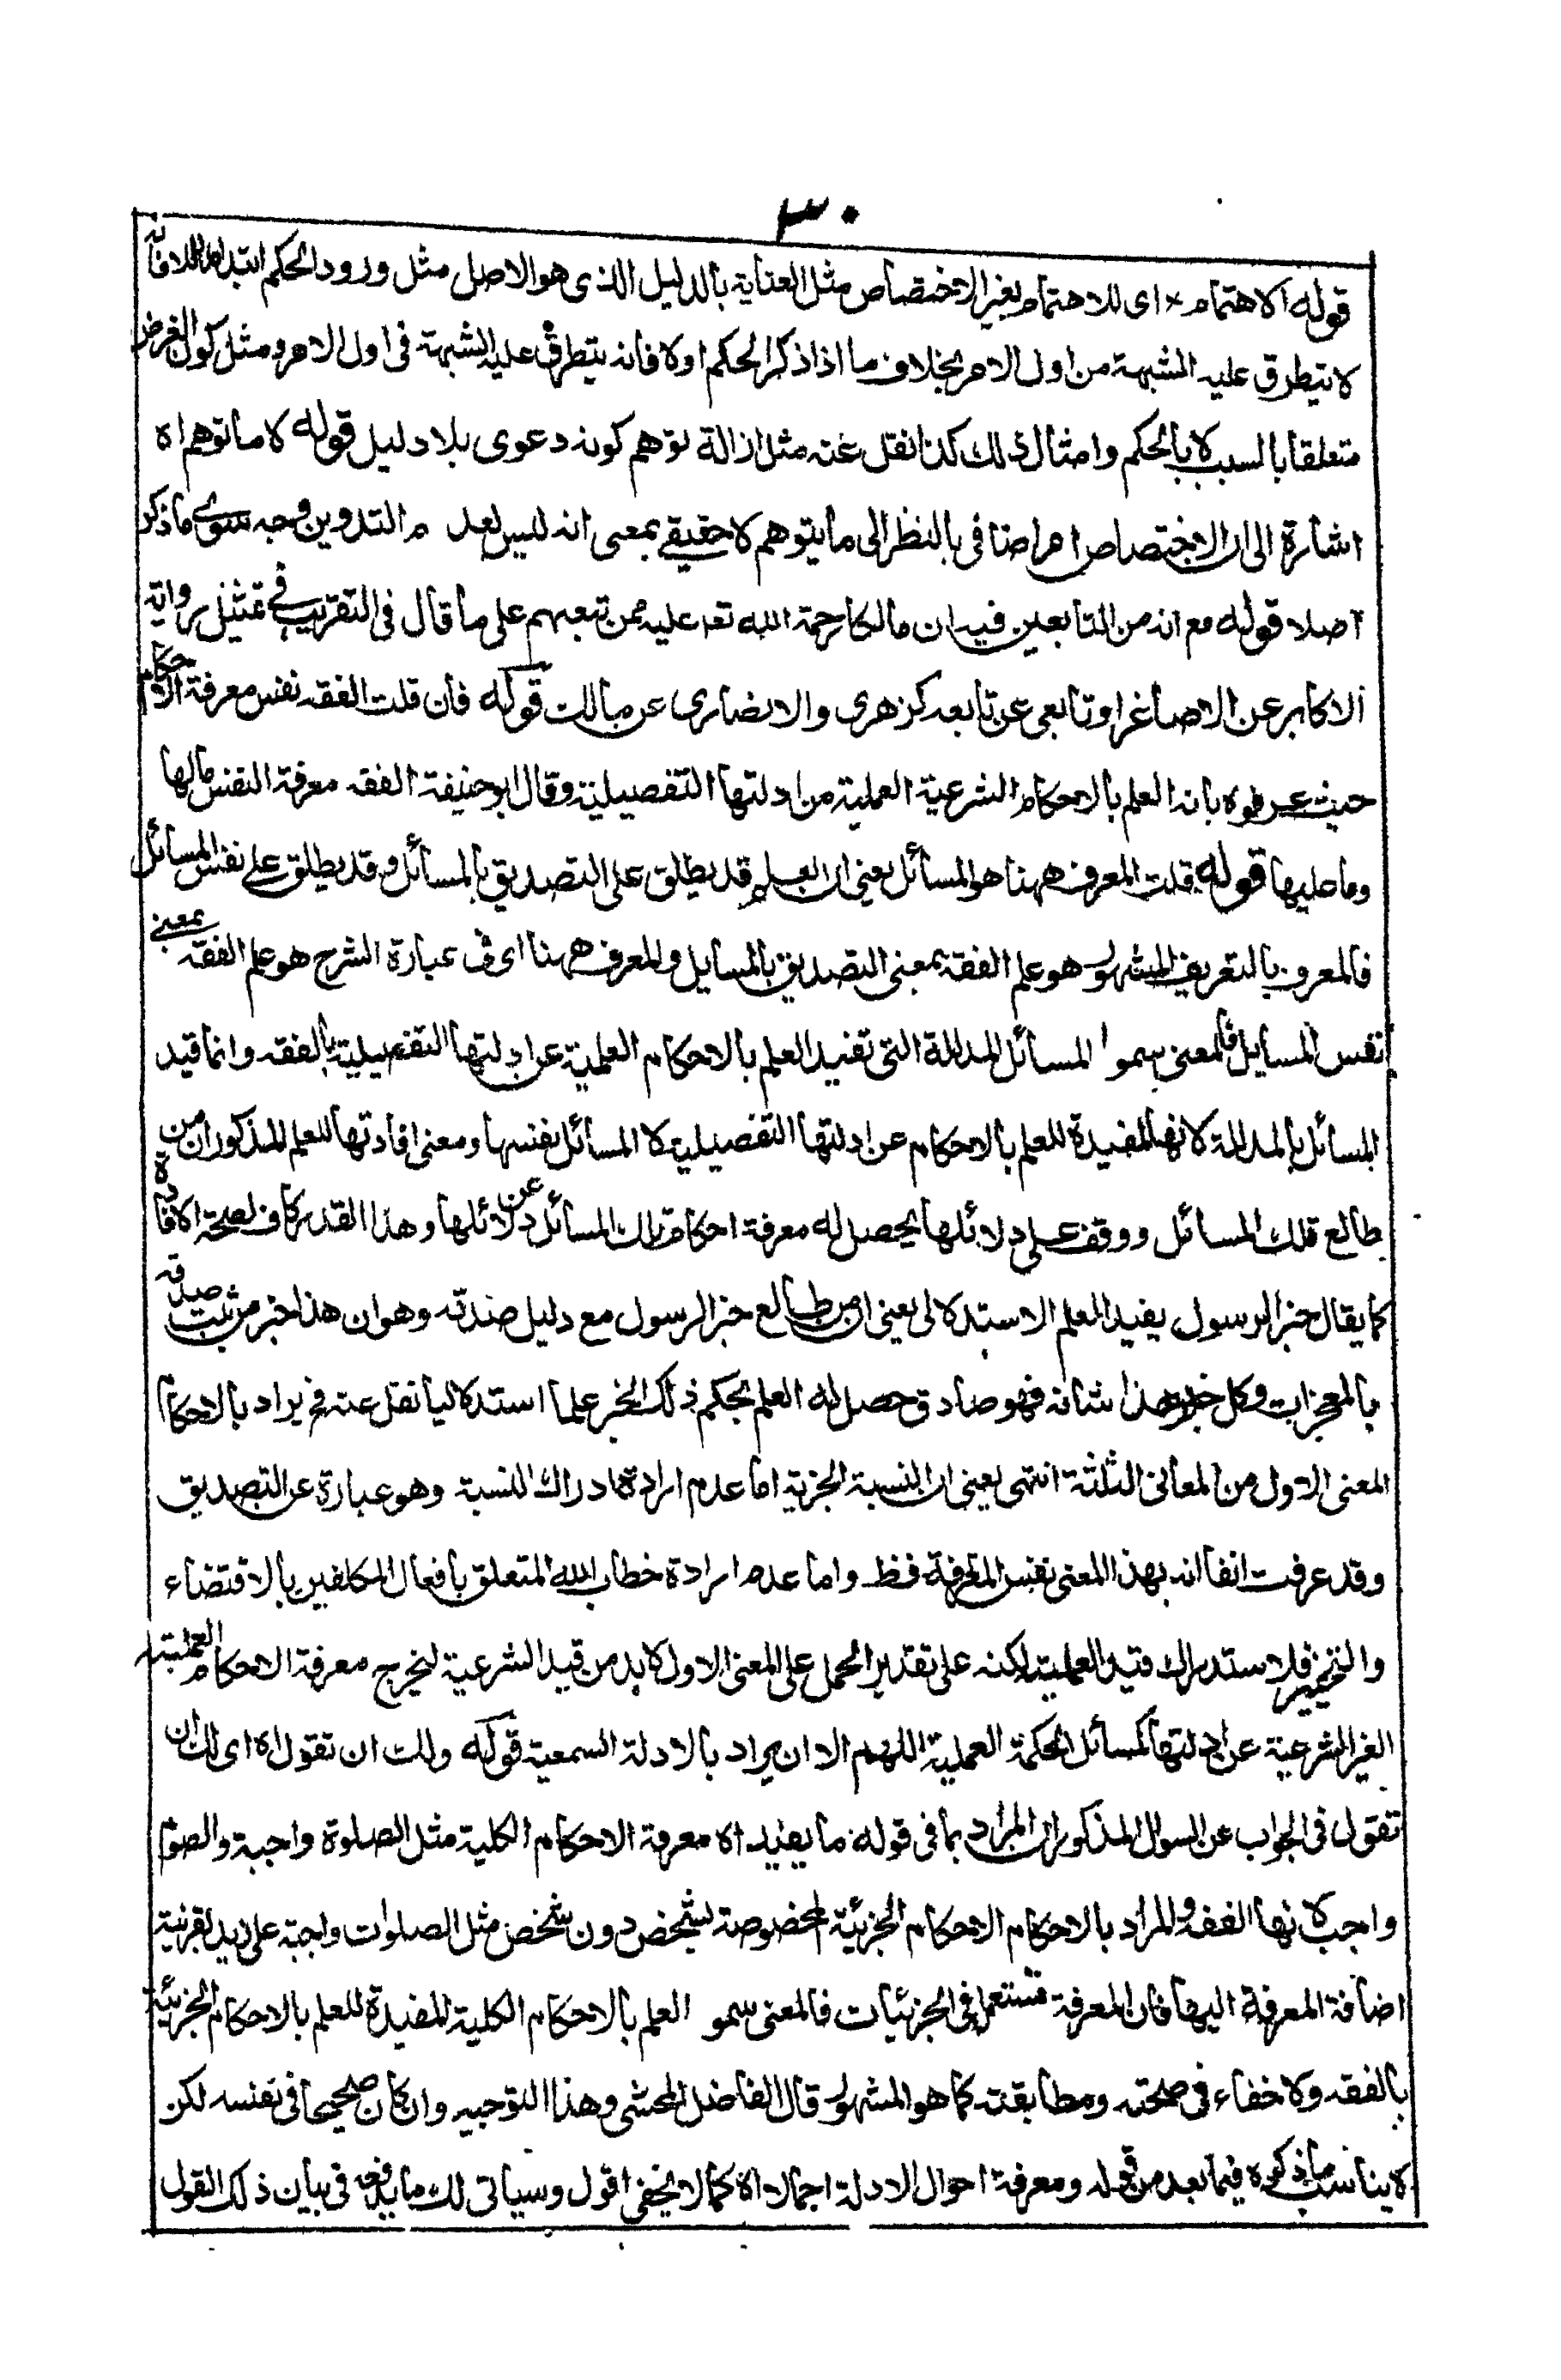 ٣٠
قوله الاهتمام × اى للاهتمام بغير الاختصاص مثل العناية بالدليل الذى هو الاصل مثل ورود الحكم ابتداء مدللا فانه
لا يتطرق عليه الشبهة من اول الامر بخلاف ما اذا ذكر الحكم اولا فانه يتطرق عليه الشبهة فى اول الامر ومثل كون الغرض
متعلقا بالسبب لا بالحكم وامثال ذلك كذا نقل عنه مثل ازالة توهم كونه دعوى بلا دليل قوله لا ما توهم اه
اشارة الى ان الاختصاص امر اضافى بالنظر الى ما يتوهم لا حقيقى بمعنى انه ليس لعدم التدوين وجه سوى ما ذكر
اصلا قوله مع انه من التابعين فيه ان مالكا رحمة الله تعا عليه ممن تبعهم على ما قال فى التقريب فى تمثيل رواية
الاكابر عن الاصاغر او تابعى عن تابعه كزهرى والانصارى عن مالك قوله فان قلت الفقه نفس معرفة الاحكام
حيث عرفوه بانه العلم بالاحكام الشرعية العملية من ادلتها التفصيلية وقال ابو حنيفة الفقه معرفة النفس مالها
وما عليها قوله قلت المعرف ههنا هو المسائل يعنى ان العلم قد يطلق على التصديق بالمسائل وقد يطلق على نفس المسائل
فالمعرف بالتعريف المشهور هو علم الفقه بمعنى التصديق بالمسايل والمعرف ههنا اى فى عبارة الشرح هو علم الفقه بمعنى
نفس المسايل فالمعنى سموا المسائل المدللة التى تفيد العلم بالاحكام العملية عن ادلتها التفصيلية بالفقه وانما قيد
المسائل بالمدللة لانها المفيدة للعلم بالاحكام عن ادلتها التفصيلية لا المسائل نفسها ومعنى افادتها للعلم المذكور ان من
طالع تلك المسائل ووقف على دلائلها يحصل له معرفة احكام تلك المسائل عن دلائلها وهذا القدر كاف لصحة الافادة
كما يقال خبر الرسول يفيد العلم الاستدلالى يعنى ان من طالع خبر الرسول مع دليل صدقه وهو ان هذا خبر من ثبت صدقه
بالمعجزات وكل خبر هذا شانه فهو صادق حصل له العلم بحكم ذلك الخبر علما استدلاليا نقل عنه فح يراد بالاحكام
المعنى الاول من المعانى الثلثة انتهى يعنى ان النسبة الخبرية اما عدم ارادة ادراك النسبة وهو عبارة عن التصديق
وقد عرفت انفا انه بهذا المعنى نفس المعرفة فظ واما عدم ارادة خطاب الله المتعلق بافعال المكلفين بالاقتضاء
والتخيير فلاستدراك قيد العملية لكنه على تقدير الحمل على المعنى الاول لا بد من قيد الشرعية ليخرج معرفة الاحكام العملية
الغير الشرعية عن ادلتها كمسائل الحكمة العملية اللهم الا ان يراد بالادلة السمعية قوله ولك ان تقول اه اى لك ان
تقول فى الجواب عن السوال المذكور ان المراد بما فى قوله ما يفيد اه معرفة الاحكام الكلية مثل الصلوة واجبة والصوم
واجب لانها الفقه والمراد بالاحكام الاحكام الجزئية المخصوصة بشخص دون شخص مثل الصلوات واجبة على زيد بقرينة
اضافة المعرفة اليها فان المعرفة تستعمل فى الجزئيات فالمعنى سمو العلم بالاحكام الكلية المفيدة للعلم بالاحكام الجزئية
بالفقه ولا خفاء فى صحته ومطابقته كما هو المشهور قال الفاضل المحشى وهذا التوجيه وان كان صحيحا فى نفسه لكن
لا يناسب ما ذكره فيما بعد من قوله ومعرفة احوال الادلة اجمالا اه كما لا يخفى اقول وسياتى لك ما يدفعه فى بيان ذلك القول